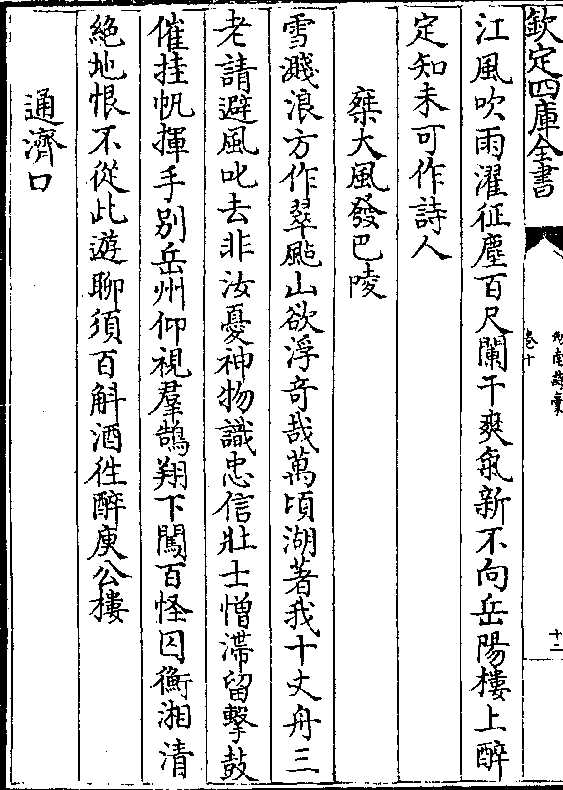 欽定四庫全書
劍南詩稾
卷十
十二
江風吹雨濯征塵百尺闌干爽氣新不向岳陽樓上醉
定知未可作詩人
椉大風發巴陵
雪濺浪方作翠颭山欲浮奇哉萬頃湖著我十丈舟三
老請避風叱去非汝憂神物識忠信壯士憎滯留擊鼓
催挂帆揮手別岳州仰視羣鵠翔下闖百怪囚衡湘清
絶地恨不從此遊聊須百斛酒徃醉庾公樓
通濟口